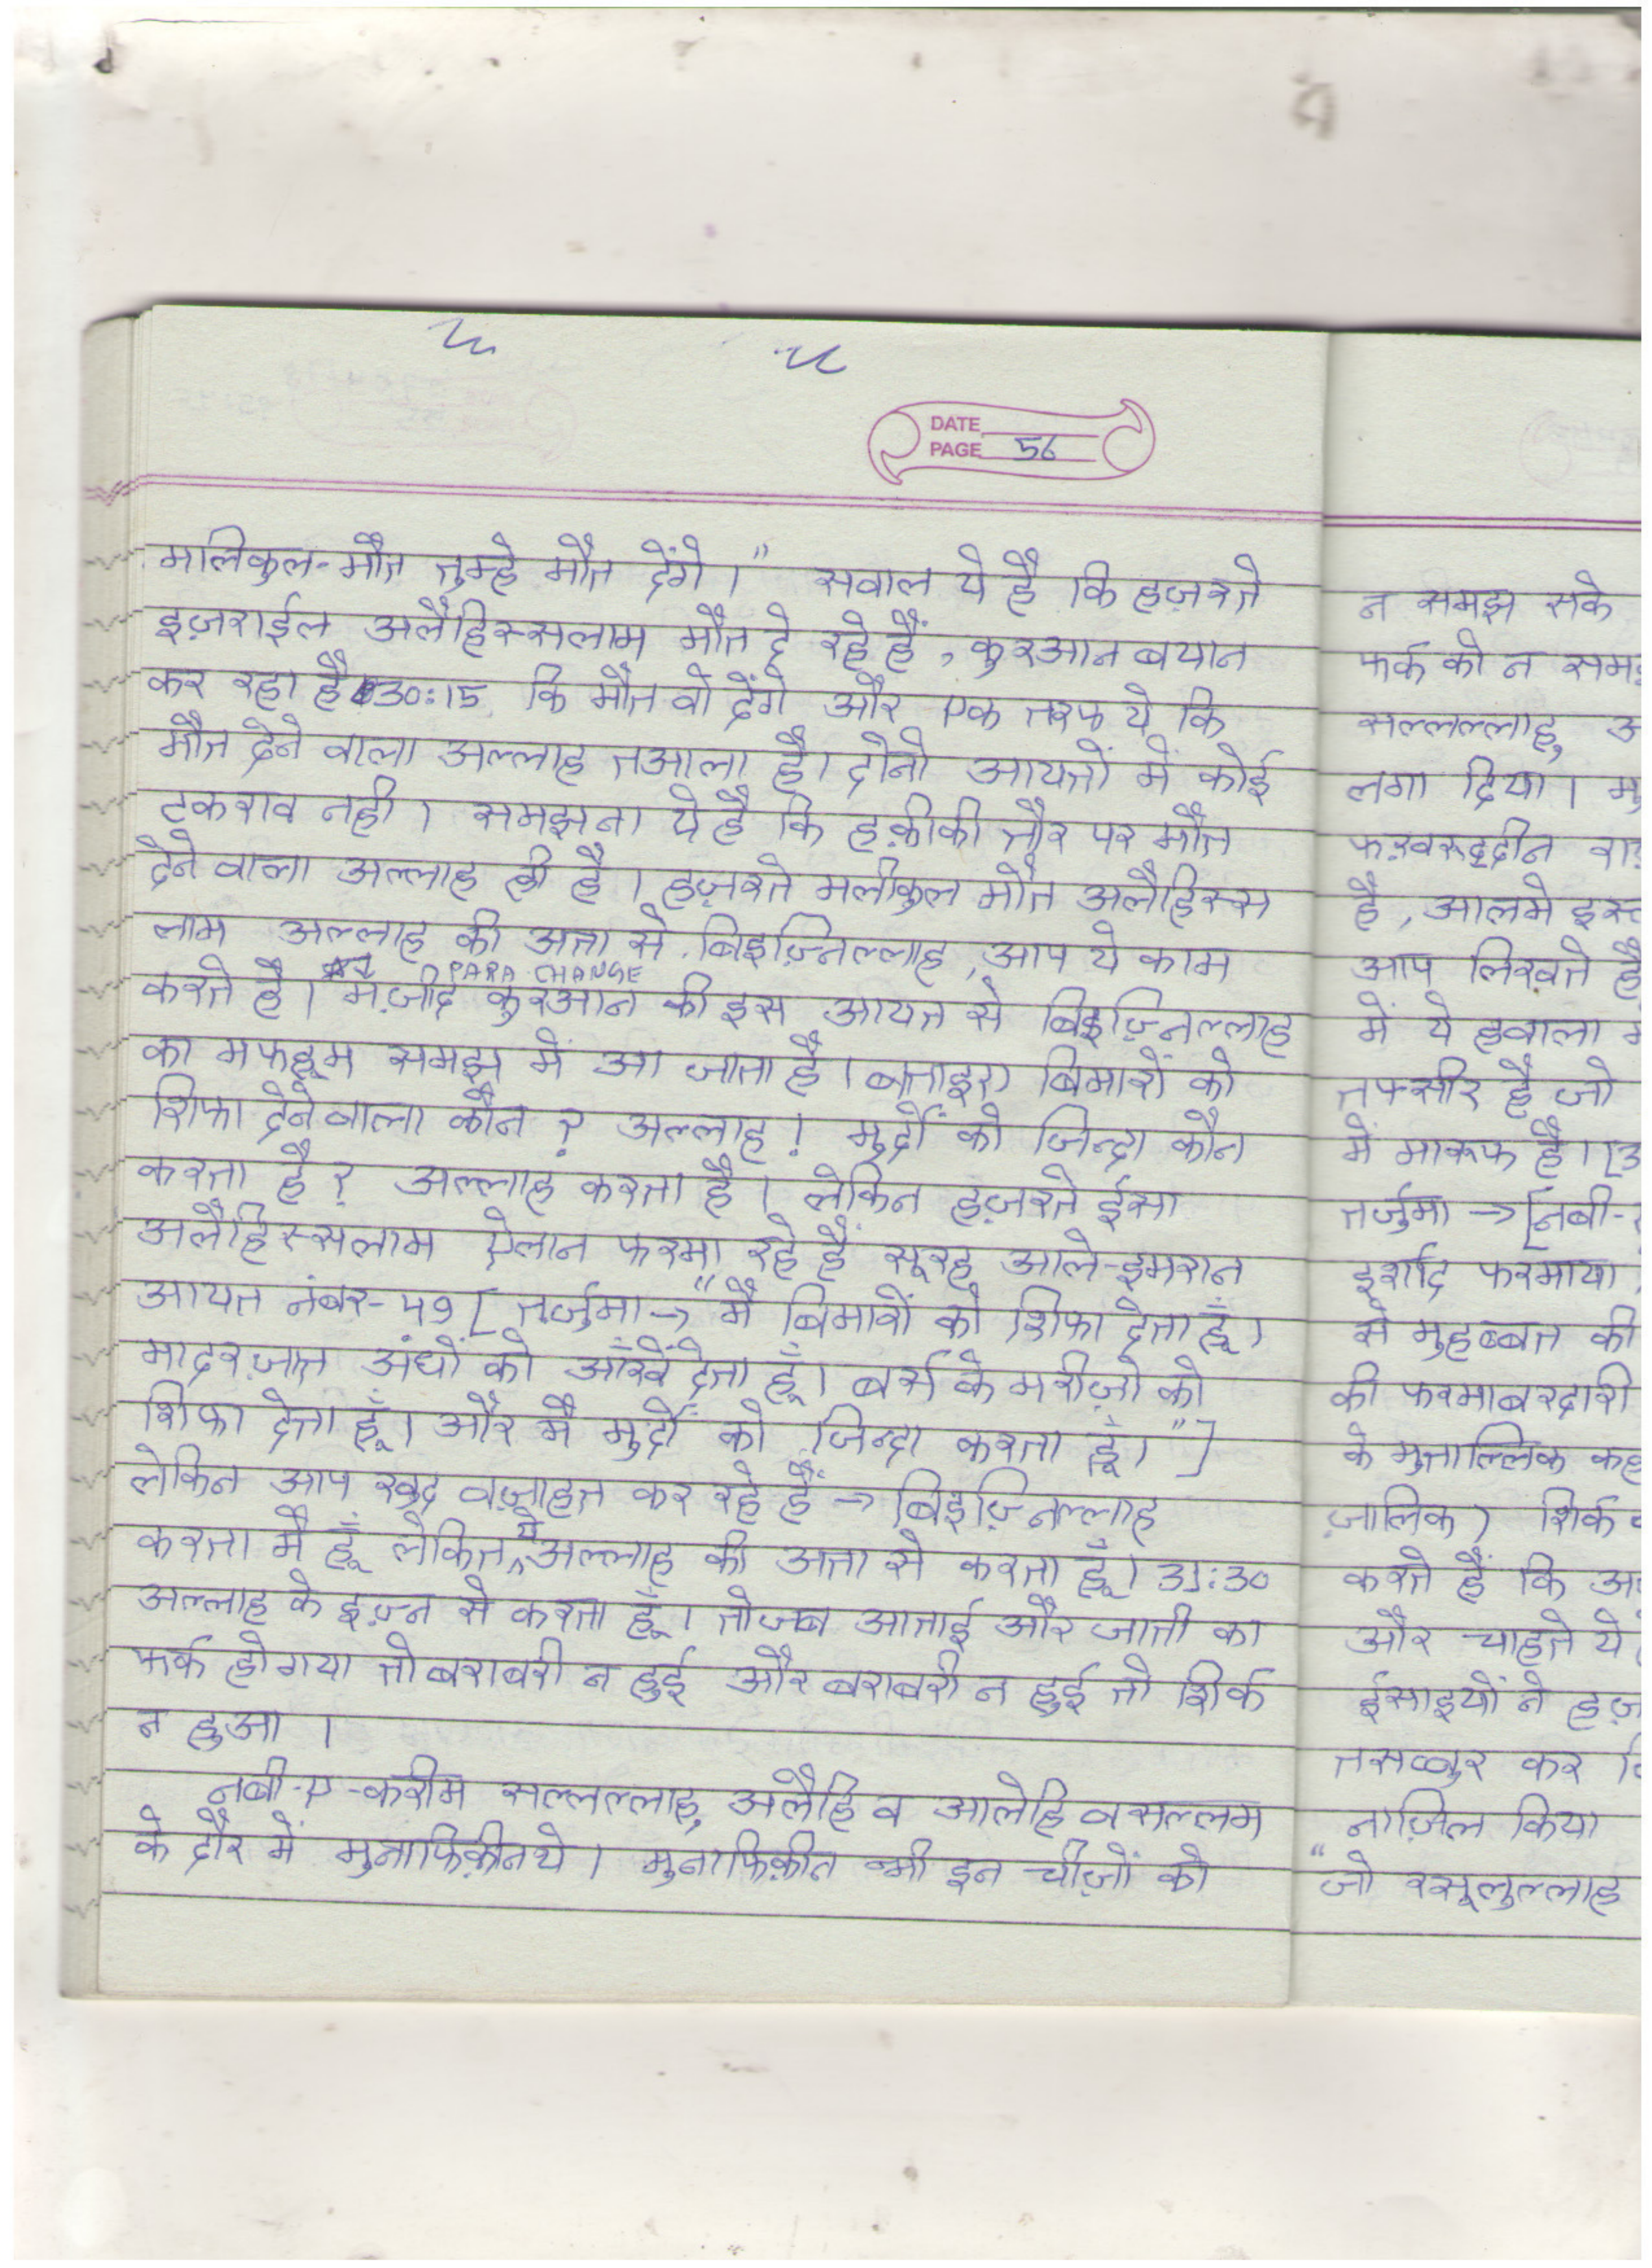 DATE
PAGE 56
मलिकुल-मौत तुम्हे मौत देंगे।" सवाल ये है कि हज़रते
इज़राईल अलैहिस्सलाम मौत दे रहे हैं, कुरआन बयान
कर रहा है 30:15 कि मौत वो देंगे और एक तरफ ये कि
मौत देने वाला अल्लाह तआला है। दोनो आयतों में कोई
टकराव नही। समझना ये है कि हक़ीकी तौर पर मौत
देने वाला अल्लाह ही है। हज़रते मलीकुल मौत अलैहिस्स
लाम अल्लाह की अता से, बिइज़्निल्लाह, आप ये काम
PARA CHANGE
करते है। मज़ीद कुरआन की इस आयत से बिइज़्निल्लाह
का मफहूम समझ में आ जाता है। बताइए बिमारों को
शिफा देने वाला कौन? अल्लाह! मुर्दों को जिन्दा कौन
करता है? अल्लाह करता है। लेकिन हज़रते ईसा
अलैहिस्सलाम ऐलान फरमा रहे हैं सूरह आले-इमरान
आयत नंबर-49 [तर्जुमा→ "मैं बिमारों को शिफा देता हूँ।
मादरज़ात अंधों को आँखें देता हूँ। बर्स के मरीज़ो को
शिफा देता हूँ। और मैं मुर्दों को जिन्दा करता हूँ।"]
लेकिन आप खुद वज़ाहत कर रहे हैं → बिइज़्निल्लाह
करता मैं हूँ लेकिन ये अल्लाह की अता से करता हूँ। 31:30
अल्लाह के इज़्न से करता हूँ। तो जब आताई और जाती का
फर्क हो गया तो बराबरी न हुई और बराबरी न हुई तो शिर्क
न हुआ।
नबी-ए-करीम सल्लल्लाहु अलैहि व आलेहि वसल्लम
के दौर में मुनाफिक़ीन थे। मुनाफिक़ीन भी इन चीज़ों को
न समझ सके
फर्क को न
सल्लल्लाहु
लगा दिया।
फख़रुद्दीन
है, आलमे
आप लिखते है
में ये हवाला
तफ्सीर है जो
में मारूफ है।
तर्जुमा → [नबी-
इर्शाद फरमाया
से मुहब्बत की
की फरमाबरदारी
के मुताल्लिक
ज़ालिक) शिर्क
करते हैं कि
और चाहते ये
ईसाइयों ने
तसव्वुर कर
नाज़िल किया
"जो रसूलुल्लाह